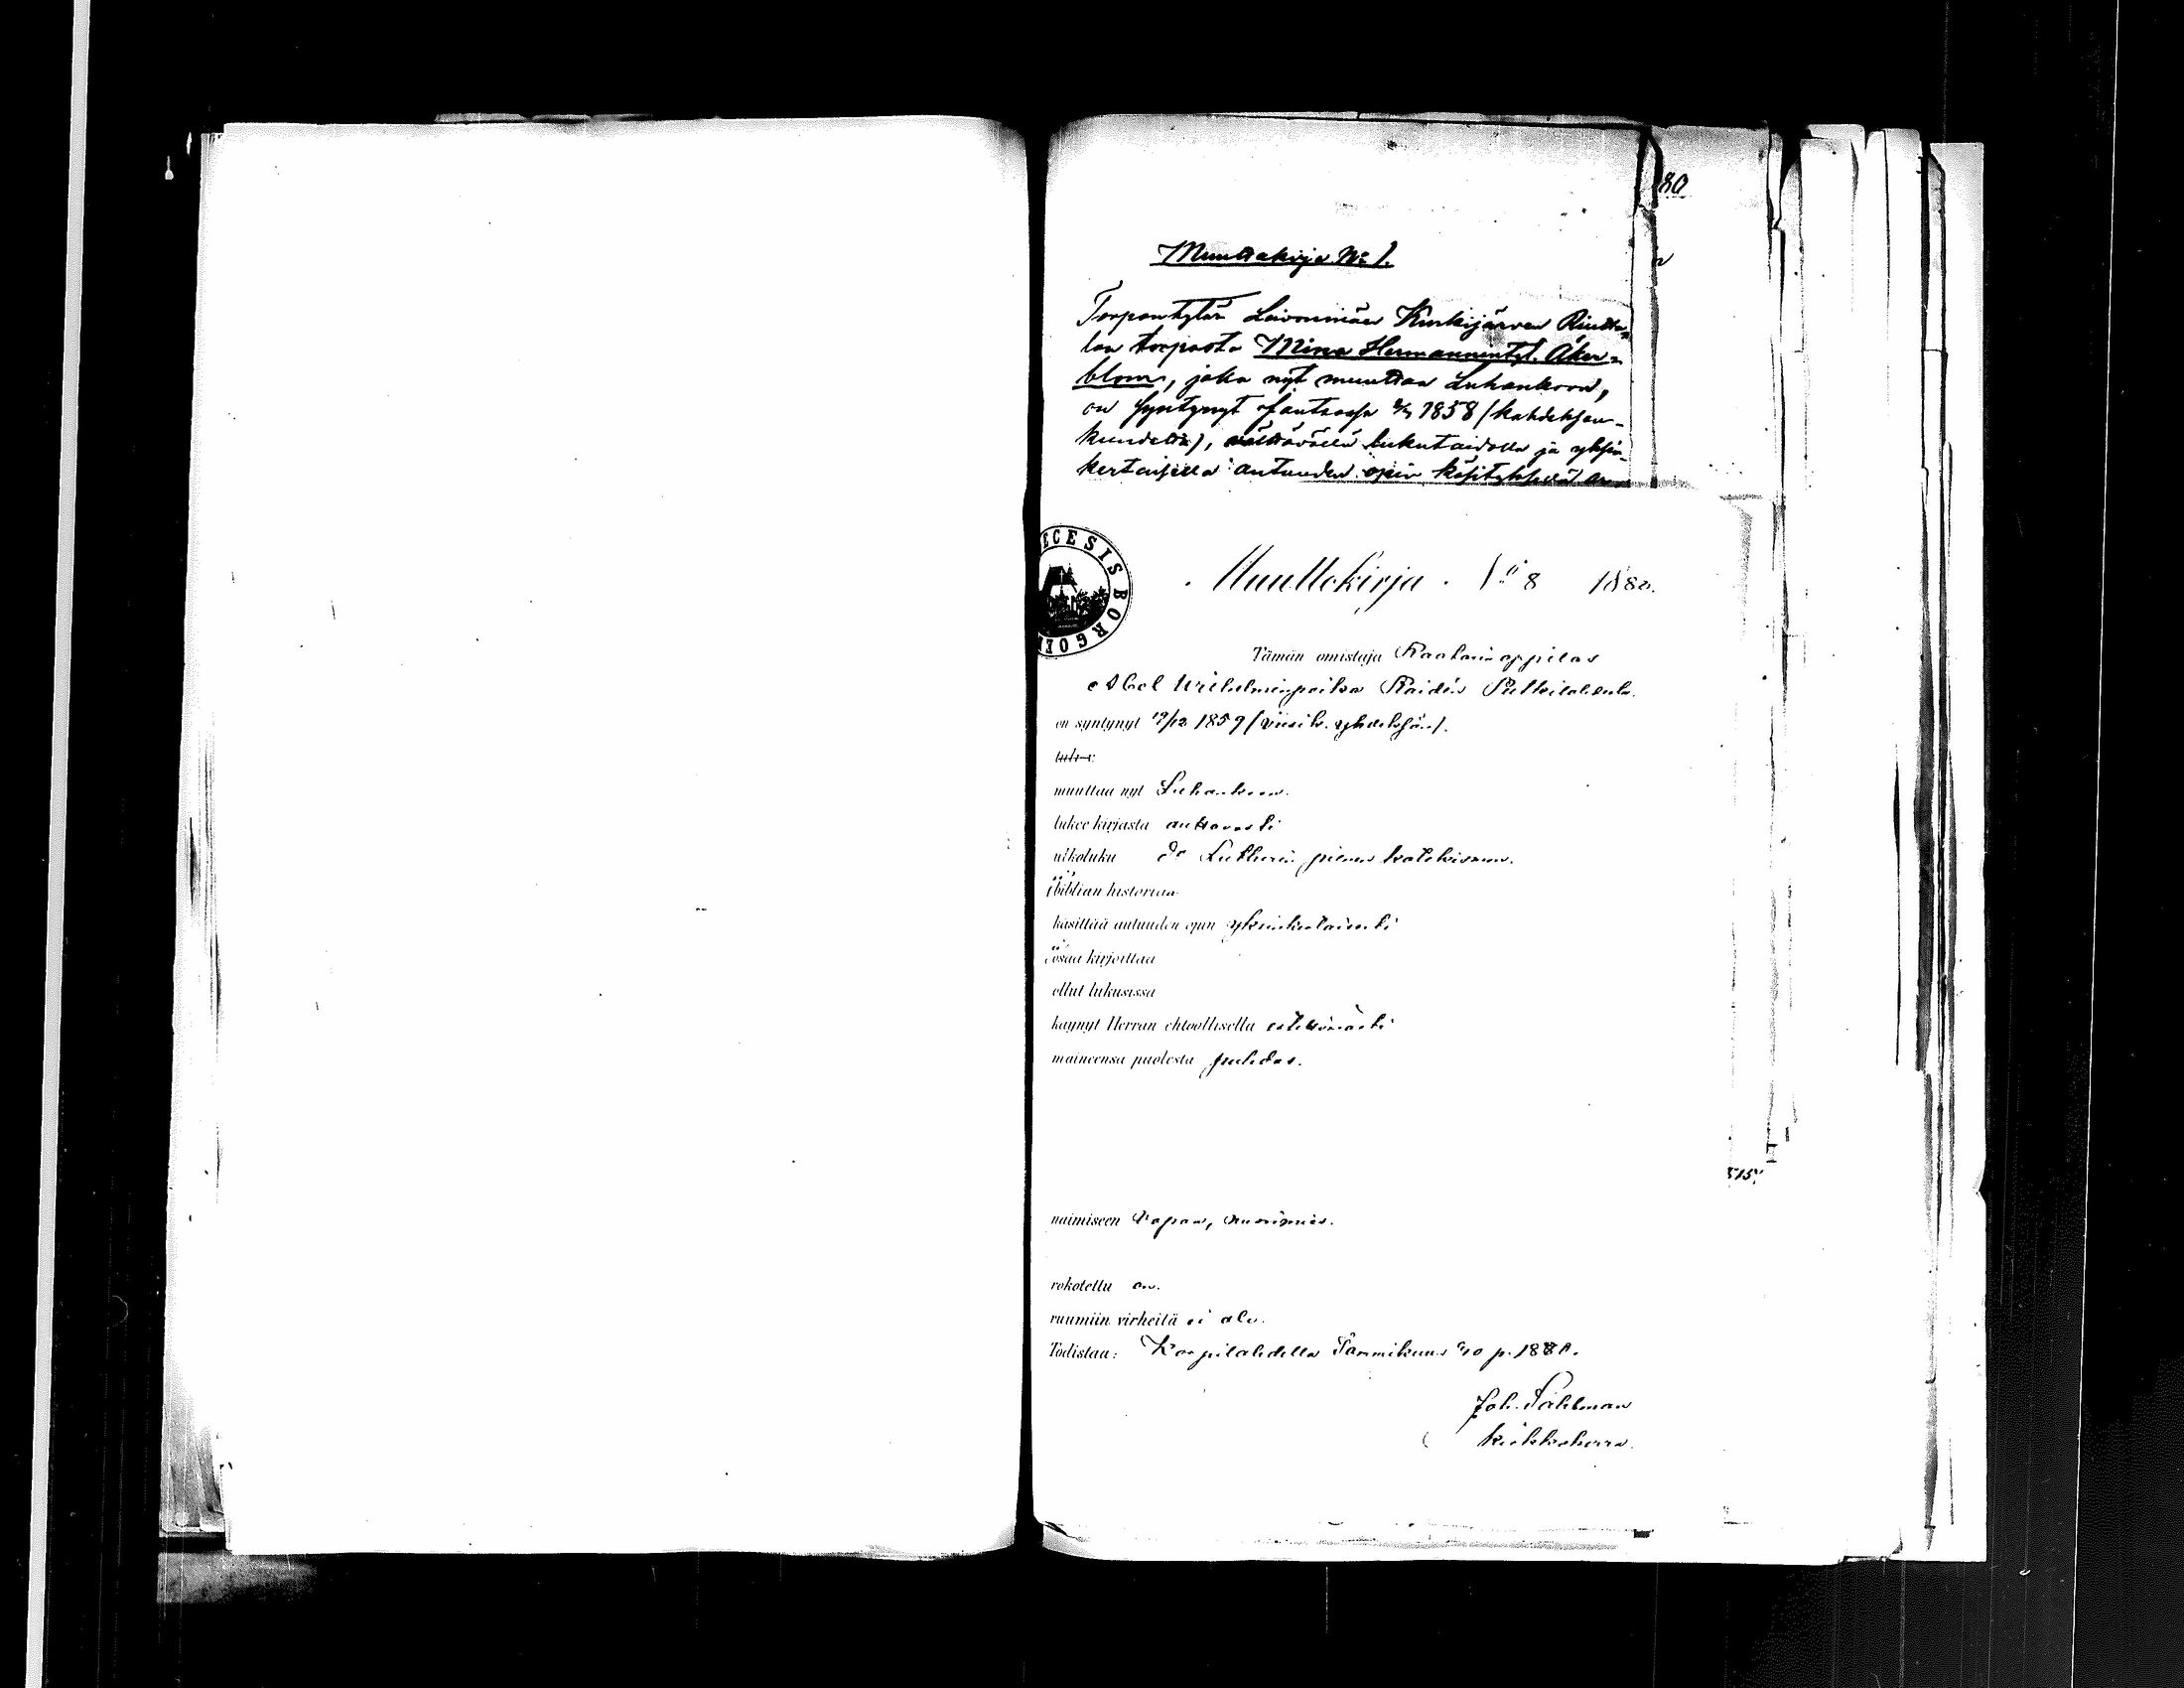 80
Muuttokirja No 1.
Torpantytär Leivonmäen Kurkijärven Rintta-
lan torpasta Mina Hermannintyt. Åker-
blom, joka nyt muuttaa Luhankoon,
on syntynyt Jautsassa 1858 (kahdeksan-
kundella), välttävällä lukutaidolla ja yksin-
kertaisella autuuden opin käsityksellä
ECESIS BORGOE
Muuttokirja. No 8 1880.
Tämän omistaja Raatarinoppilas
Abel Wilhelminpoika Raidén Putkilahdelta
on syntynyt 19/12 1859 (viisik. yhdeksän).
tulee
muuttaa nyt Luhankoon.
lukee kirjasta auttavasti
ulkoluku do Lutherin pienen katekismon.
biblian historiaa
käsittää autuuden opin yksinkertaisesti
osaa kirjoittaa
ollut lukusissa
käynyt Herran ehtoollisella esteettömästi
maineensa puolesta puhdas.
515
naimiseen vapaa, nuorimies.
rokotettu on.
ruumiin virheitä ei ole.
Todistaa: Korpilahdella Tammikuun 10 p. 1880.
Joh. Påhlman
kirkkoherra.